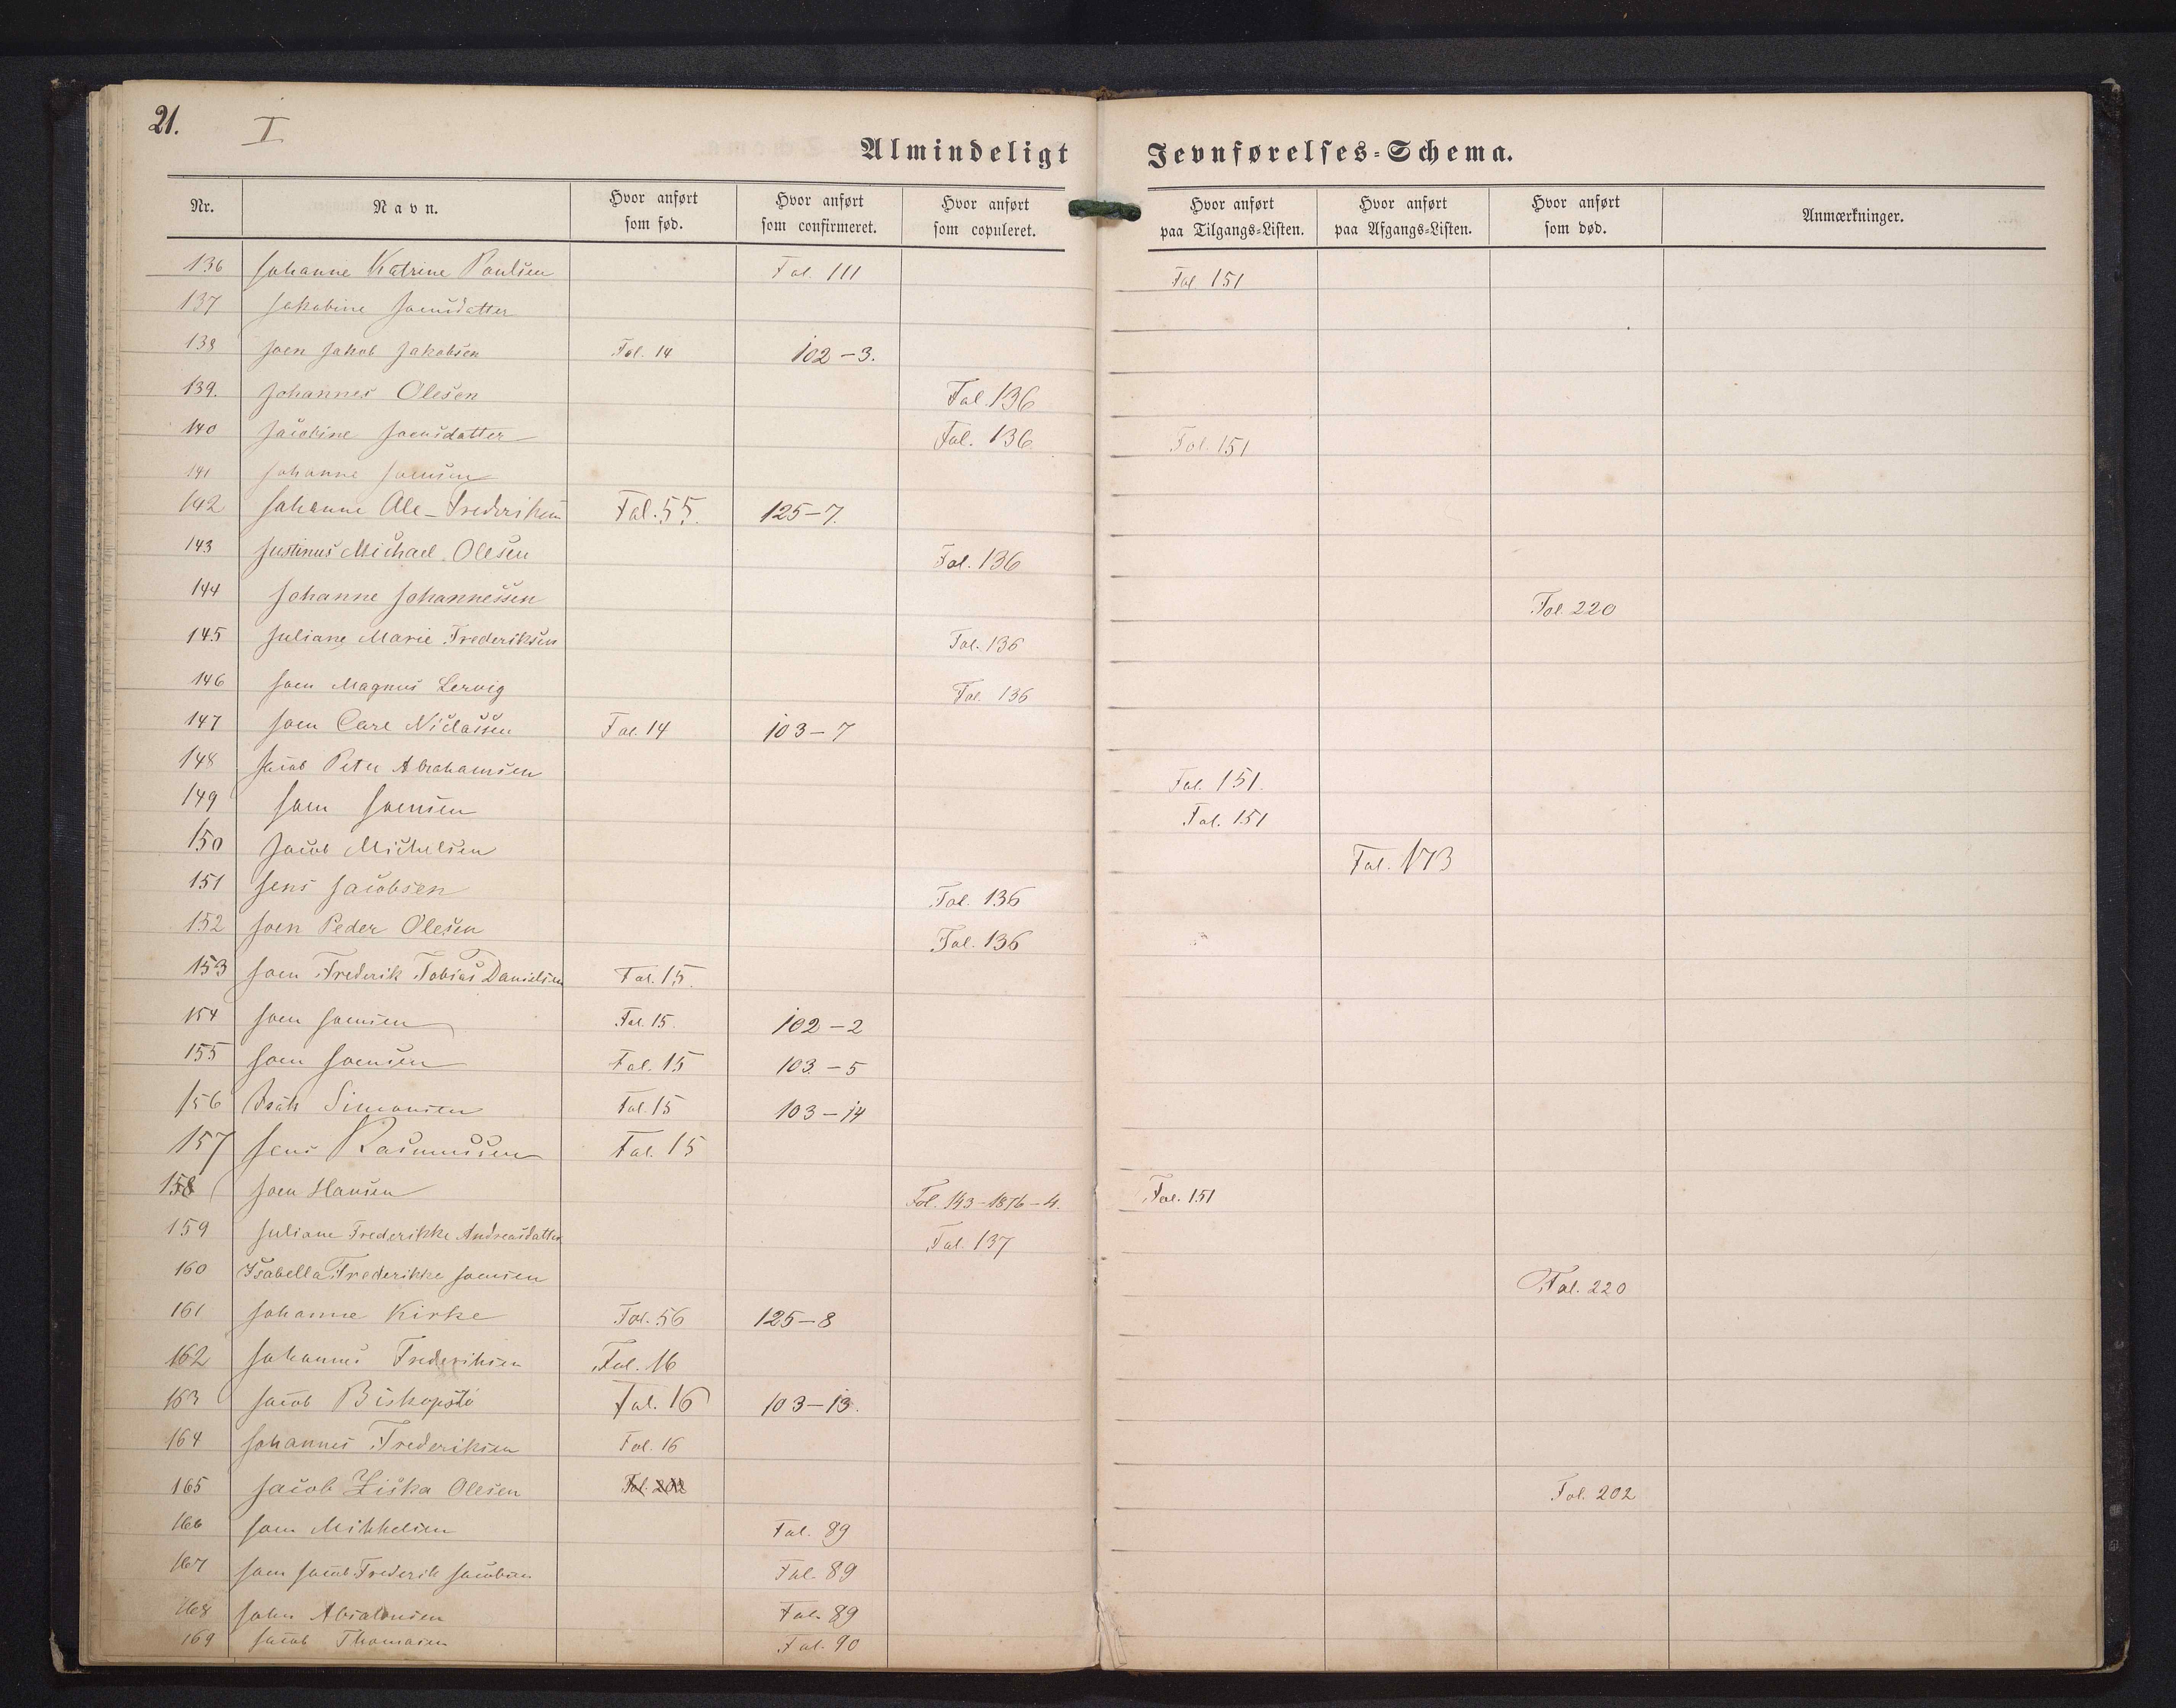 21. I
Almindeligt Jevnførelses-Schema.
Nr. Navn. Hvor anført som fød. Hvor anført som confirmeret. Hvor anført som copuleret. Hvor anført paa Tilgangs-Listen. Hvor anført paa Afgangs-Listen. Hvor anført som død. Anmærkninger.
136 Johanne Katrine Poulsen Fol. 111 Fol 151
137 Jakobine Joensdatter
138 Joen Jakob Jakobsen Fol. 14 102-3.
139. Johannes Olesen Fol. 136
140 Jacobine Joensdatter Fol. 136 Fol. 151
141 Johanne Joensen
142 Johanne Ale-Frederiksen Fol. 55. 125-7.
143 Justinus Michael Olesen Fol. 136
144 Johanne Johannessen Fol. 220
145 Juliane Marie Frederiksen Fol. 136
146 Joen Magnus Lervig Fol. 136
147 Joen Carl Niclassen Fol. 14 103-7
148 Jacob Peter Abrahamsen Fol. 151.
149 Joen Joensen Fol. 151
150 Jacob Michelsen Fol. 173
151 Jens Jacobsen Fol. 136
152 Joen Peder Olesen Fol. 136
153 Joen Frederik Tobias Danielsen Fol. 15.
154 Joen Joensen Fol. 15. 102-2
155 Joen Joensen Fol. 15 103-5
156 Isak Simonsen Fol. 15 103-14
157 Jens Rasmussen Fol. 15
158 Joen Hansen Fol. 143-1876-4. Fol. 151
159 Juliane Frederikke Andreasdatter Fol. 137
160 Isabella Frederikke Joensen Fol. 220
161 Johanne Kirke Fol. 56 125-8
162 Johannes Frederiksen Fol. 16
163 Jacob Biskopstö Fol. 16 103-13.
164 Johannes Frederiksen Fol. 16
165 Jacob Ziska Olesen Fol. 202 Fol. 202
166 Joen Mikkelsen Fol. 89
167 Joen Jacob Frederik Jacobsen Fol. 89
168 John Absalonsen Fol. 89
169 Jacob Thomasen Fol. 90